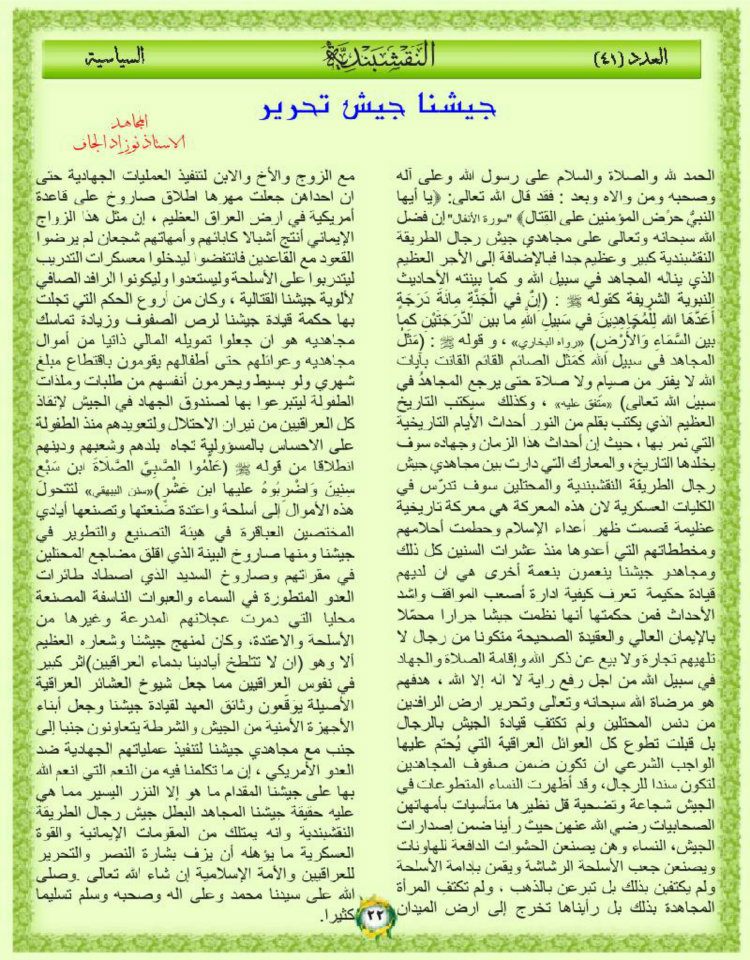 العدد (٤١)
النقشبندية
السياسية
جيشنا جيش تحرير
المجاهد
الاستاذ نوزاد الجاف
الحمد لله والصلاة والسلام على رسول الله وعلى آله
وصحبه ومن والاه وبعد : فقد قال الله تعالى: ﴿يا أيها
النبيُّ حرِّض المؤمنين على القتال﴾ "سورة الأنفال" إن فضل
الله سبحانه وتعالى على مجاهدي جيش رجال الطريقة
النقشبندية كبير وعظيم جدا فبالإضافة إلى الأجر العظيم
الذي يناله المجاهد في سبيل الله و كما بينته الأحاديث
النبوية الشريفة كقوله ﷺ : (إِنَّ فِي الْجَنَّةِ مِائَةَ دَرَجَةٍ
أَعَدَّهَا اللَّه لِلْمُجَاهِدِينَ فِي سَبِيلِ اللَّهِ ما بين الدَّرَجَتَيْنِ كما
بين السَّمَاءِ وَالْأَرْضِ) «رواه البخاري» ، و قوله ﷺ : (مَثَلُ
المجاهد في سبيل الله كَمَثَل الصائم القائم القانت بآيات
الله لا يفتر من صيام ولا صلاة حتى يرجع المجاهدُ في
سبيل الله تعالى) «متّفق عليه» ، وكذلك سيكتب التاريخ
العظيم الذي يكتب بقلم من النور أحداث الأيام التاريخية
التي نمر بها ، حيث إن أحداث هذا الزمان وجهاده سوف
يخلدها التاريخ، والمعارك التي دارت بين مجاهدي جيش
رجال الطريقة النقشبندية والمحتلين سوف تدرّس في
الكليات العسكرية لان هذه المعركة هي معركة تاريخية
عظيمة قصمت ظهر أعداء الإسلام وحطمت أحلامهم
ومخططاتهم التي أعدوها منذ عشرات السنين كل ذلك
ومجاهدو جيشنا ينعمون بنعمة أخرى هي ان لديهم
قيادة حكيمة تعرف كيفية ادارة أصعب المواقف واشد
الأحداث فمن حكمتها أنها نظمت جيشا جرارا محمّلا
بالإيمان العالي والعقيدة الصحيحة متكونا من رجال لا
تلهيهم تجارة ولا بيع عن ذكر الله وإقامة الصلاة والجهاد
في سبيل الله من اجل رفع راية لا اله إلا الله ، هدفهم
هو مرضاة الله سبحانه وتعالى وتحرير ارض الرافدين
من دنس المحتلين ولم تكتف قيادة الجيش بالرجال
بل قبلت تطوع كل العوائل العراقية التي يُحتم عليها
الواجب الشرعي ان تكون ضمن صفوف المجاهدين
لتكون سندا للرجال، وقد أظهرت النساء المتطوعات في
الجيش شجاعة وتضحية قل نظيرها متأسيات بأمهاتهن
الصحابيات رضي الله عنهن حيث رأينا ضمن إصدارات
الجيش، النساء وهن يصنعن الحشوات الدافعة للهاونات
ويصنعن جعب الأسلحة الرشاشة ويقمن بإدامة الأسلحة
ولم يكتفين بذلك بل تبرعن بالذهب ، ولم تكتف المرأة
المجاهدة بذلك بل رأيناها تخرج إلى ارض الميدان
مع الزوج والأخ والابن لتنفيذ العمليات الجهادية حتى
ان احداهن جعلت مهرها اطلاق صاروخ على قاعدة
أمريكية في ارض العراق العظيم ، إن مثل هذا الزواج
الإيماني أنتج أشبالا كآبائهم وأمهاتهم شجعان لم يرضوا
القعود مع القاعدين فانتفضوا ليدخلوا معسكرات التدريب
ليتدربوا على الأسلحة وليستعدوا وليكونوا الرافد الصافي
لألوية جيشنا القتالية ، وكان من أروع الحكم التي تجلت
بها حكمة قيادة جيشنا لرص الصفوف وزيادة تماسك
مجاهديه هو ان جعلوا تمويله المالي ذاتيا من أموال
مجاهديه وعوائلهم حتى أطفالهم يقومون باقتطاع مبلغ
شهري ولو بسيط ويحرمون أنفسهم من طلبات وملذات
الطفولة ليتبرعوا بها لصندوق الجهاد في الجيش لإنقاذ
كل العراقيين من نيران الاحتلال ولتعويدهم منذ الطفولة
على الاحساس بالمسؤولية تجاه بلدهم وشعبهم ودينهم
انطلاقا من قوله ﷺ (عَلِّمُوا الصَّبِيَّ الصَّلَاةَ ابن سَبْعِ
سِنِينَ وَاضْرِبُوهُ عليها ابن عَشْرٍ)«سنن البيهقي» لتتحول
هذه الأموال إلى أسلحة واعتدة صنعتها وتصنعها أيادي
المختصين العباقرة في هيئة التصنيع والتطوير في
جيشنا ومنها صاروخ البينة الذي اقلق مضاجع المحتلين
في مقراتهم وصاروخ السديد الذي اصطاد طائرات
العدو المتطورة في السماء والعبوات الناسفة المصنعة
محليا التي دمرت عجلاتهم المدرعة وغيرها من
الأسلحة والاعتدة، وكان لمنهج جيشنا وشعاره العظيم
ألا وهو (ان لا تتلطخ أيادينا بدماء العراقيين)اثر كبير
في نفوس العراقيين مما جعل شيوخ العشائر العراقية
الأصيلة يوقّعون وثائق العهد لقيادة جيشنا وجعل أبناء
الأجهزة الأمنية من الجيش والشرطة يتعاونون جنبا إلى
جنب مع مجاهدي جيشنا لتنفيذ عملياتهم الجهادية ضد
العدو الأمريكي ، إن ما تكلمنا فيه من النعم التي انعم الله
بها على جيشنا المقدام ما هو إلا النزر اليسير مما هي
عليه حقيقة جيشنا المجاهد البطل جيش رجال الطريقة
النقشبندية وانه يمتلك من المقومات الإيمانية والقوة
العسكرية ما يؤهله أن يزف بشارة النصر والتحرير
للعراقيين والأمة الإسلامية إن شاء الله تعالى .وصلى
الله على سيدنا محمد وعلى اله وصحبه وسلم تسليما
كثيرا.
٢٢